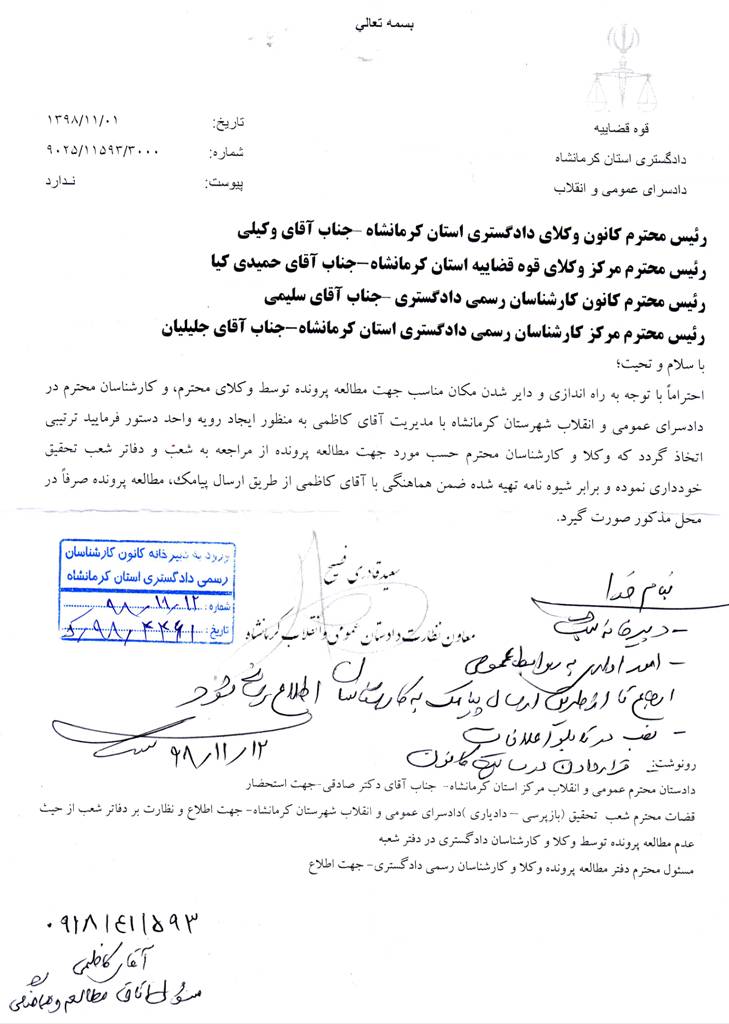 بسمه تعالي
قوه قضاییه
دادگستری استان کرمانشاه
دادسرای عمومی و انقلاب
تاریخ: ۱۳۹۸/۱۱/۰۱
شماره: ۹۰۲۵/۱۱۵۹۳/۳۰۰۰
پیوست: ندارد
رئیس محترم کانون وکلای دادگستری استان کرمانشاه -جناب آقای وکیلی
رئیس محترم مرکز وکلای قوه قضاییه استان کرمانشاه-جناب آقای حمیدی کیا
رئیس محترم کانون کارشناسان رسمی دادگستری -جناب آقای سلیمی
رئیس محترم مرکز کارشناسان رسمی دادگستری استان کرمانشاه-جناب آقای جلیلیان
با سلام و تحیت؛
احتراماً با توجه به راه اندازی و دایر شدن مکان مناسب جهت مطالعه پرونده توسط وکلای محترم، و کارشناسان محترم در
دادسرای عمومی و انقلاب شهرستان کرمانشاه با مدیریت آقای کاظمی به منظور ایجاد رویه واحد دستور فرمایید ترتیبی
اتخاذ گردد که وکلا و کارشناسان محترم حسب مورد جهت مطالعه پرونده از مراجعه به شعب و دفاتر شعب تحقیق
خودداری نموده و برابر شیوه نامه تهیه شده ضمن هماهنگی با آقای کاظمی از طریق ارسال پیامک، مطالعه پرونده صرفاً در
محل مذکور صورت گیرد.
سعید قادری فسیح
معاون نظارت دادستان عمومی و انقلاب کرمانشاه
ورود به دبیرخانه کانون کارشناسان
رسمی دادگستری استان کرمانشاه
شماره: ۹۸/۱۱/۱۲
تاریخ: ۹۸/۴۴۶۱/ک
بنام خدا
- دبیرخانه ثبت
- امور اداری به روابط عمومی
ارجاع تا از طریق ارسال پیامک به کارشناسان اطلاع رسانی شود
- نصب در تابلو اعلانات
- قراردادن در سایت کانون
۹۸/۱۱/۱۲
رونوشت:
دادستان محترم عمومی و انقلاب مرکز استان کرمانشاه- جناب آقای دکتر صادقی-جهت استحضار
قضات محترم شعب تحقیق (بازپرسی – دادیاری )دادسرای عمومی و انقلاب شهرستان کرمانشاه- جهت اطلاع و نظارت بر دفاتر شعب از حیث
عدم مطالعه پرونده توسط وکلا و کارشناسان دادگستری در دفتر شعبه
مسئول محترم دفتر مطالعه پرونده وکلا و کارشناسان رسمی دادگستری- جهت اطلاع
۰۹۱۸۱۴۱۱۵۹۳
آقای کاظمی
مسئول اتاق مطالعه و هماهنگی